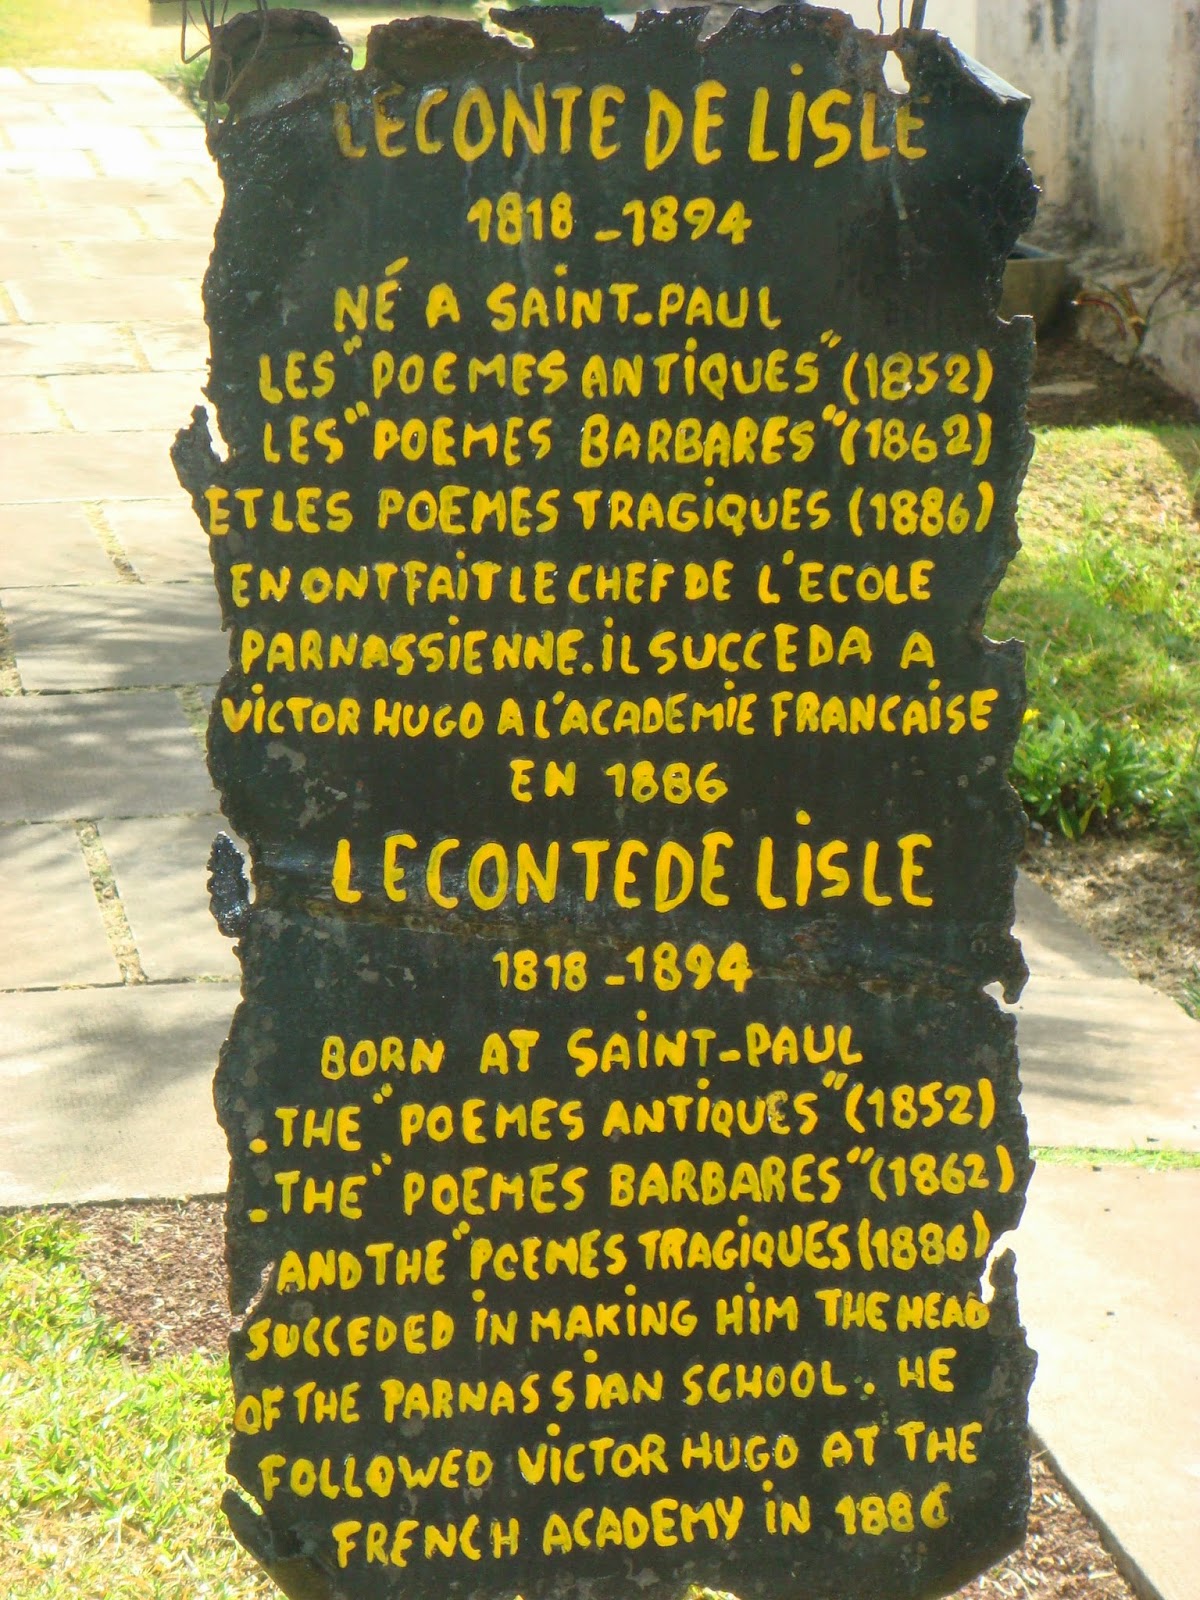 LECONTE DE LISLE
1818 - 1894
NÉ A SAINT-PAUL
LES "POEMES ANTIQUES" (1852)
LES "POEMES BARBARES" (1862)
ET LES POEMES TRAGIQUES (1886)
EN ONT FAIT LE CHEF DE L'ECOLE
PARNASSIENNE. IL SUCCEDA A
VICTOR HUGO A L'ACADEMIE FRANCAISE
EN 1886
LECONTE DE LISLE
1818 - 1894
BORN AT SAINT-PAUL
- THE "POEMES ANTIQUES" (1852)
- THE "POEMES BARBARES" (1862)
AND THE "POEMES TRAGIQUES (1886)
SUCCEDED IN MAKING HIM THE HEAD
OF THE PARNASSIAN SCHOOL. HE
FOLLOWED VICTOR HUGO AT THE
FRENCH ACADEMY IN 1886